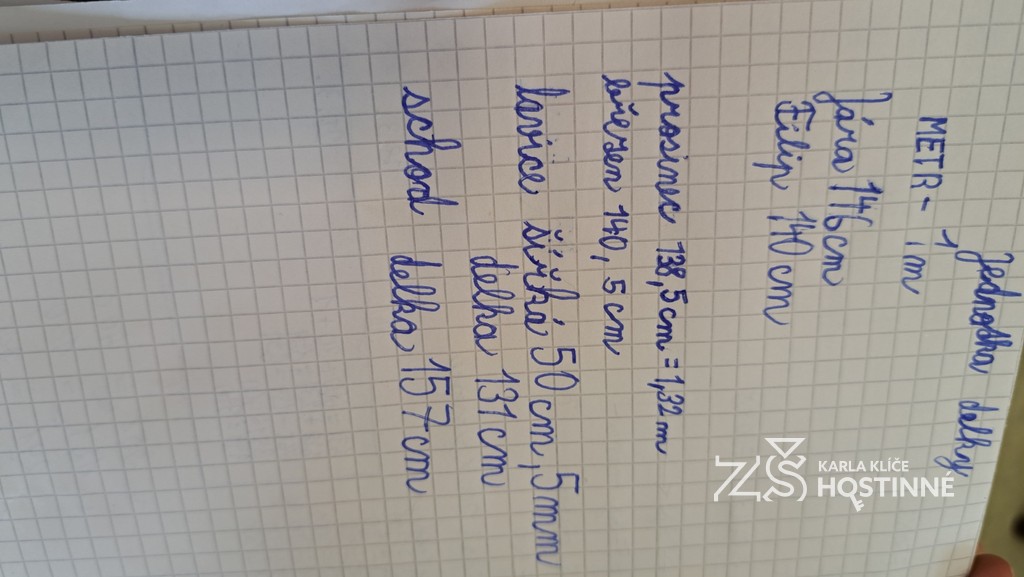 Jednotka delky
METR - 1m
Jára 146cm
Filip 140cm
prosinec 138,5cm = 1,32m
březen 140,5cm
lavice šířká 50cm, 5mm
delka 131cm
schod delka 157cm
ZŠ KARLA KLÍČE
HOSTINNÉ